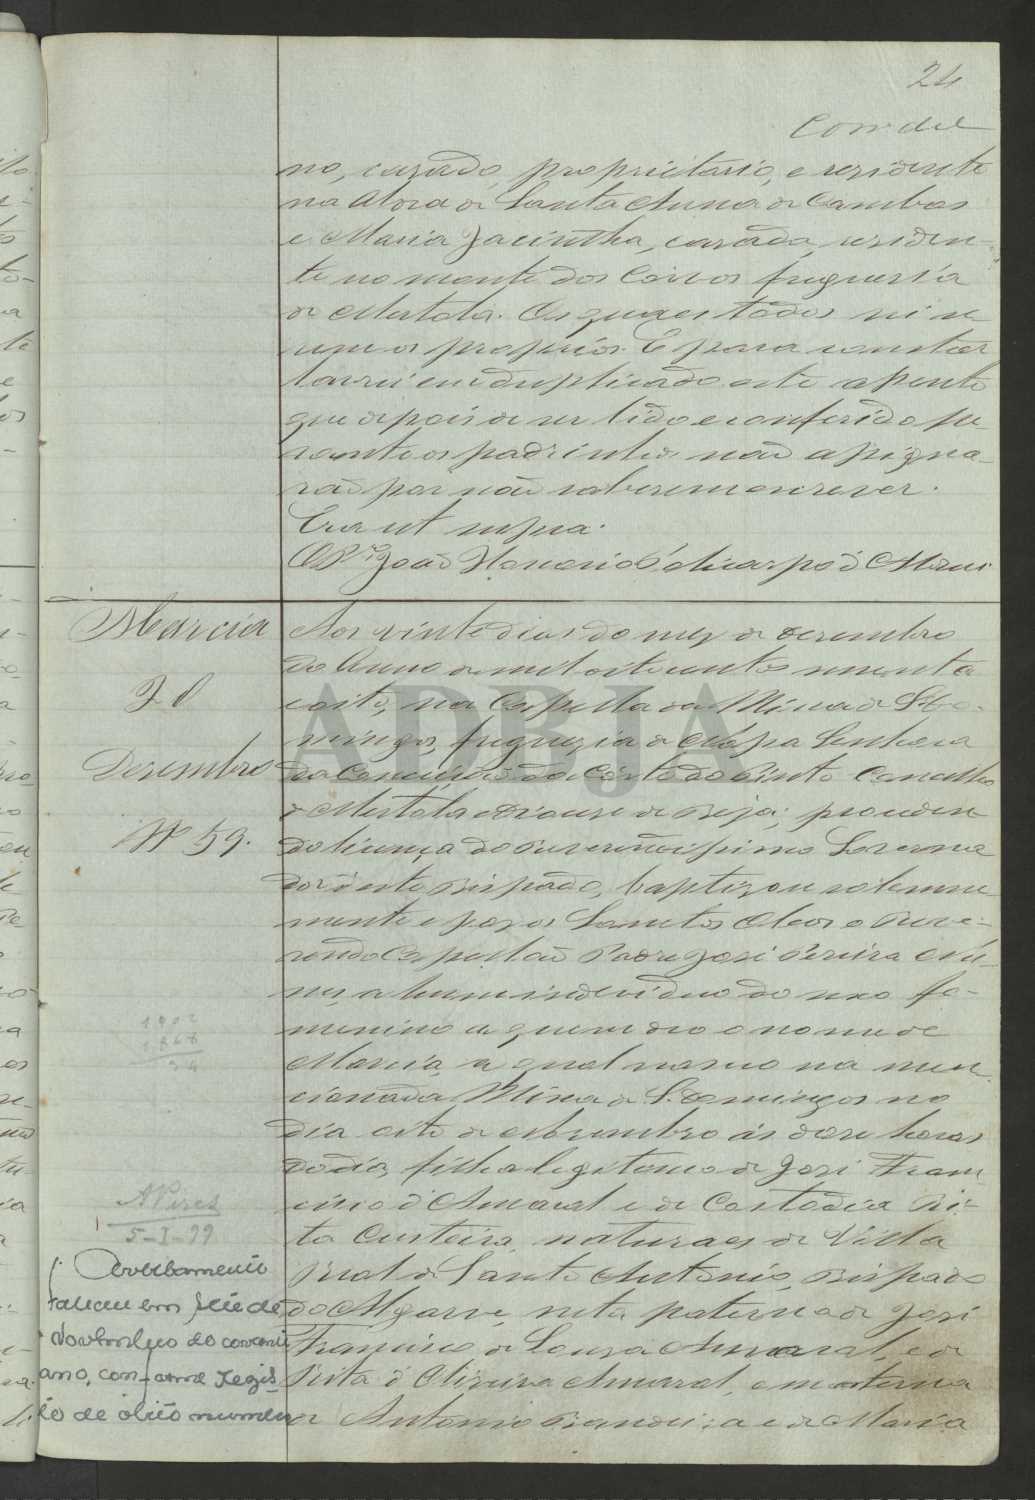 24
no, cazado, proprietario, e rezidente
na Aldra de Santa Anna de Cambas
e Maria Jacintha, cazada, residen-
te no monte dos Corvos freguesia
de Mertola. Os quaes todos sei se
rem os proprios. E para constar
lavrei em duplicado este assento
que depois de ser lido e conferido pe-
rante os padrinhos não assigna-
rão por não saberem escrever.
Era ut supra.
O P.e João
Marcia
Dezembro
Nº 59.
Aos vinte dias do mez de Dezembro
do Anno de mil oito centos noventa
e oito, na Capella da Mina de S. Do-
mingos, freguezia de Nossa Senhora
da Conceição da Córte do Pinto Concelho
de Mertola e Diocese de Beja; preceden
do licença do Reverendissimo Governa
dor d'este Bispado, baptizou solemne
mente e poz os Sanctos Oleos o Reve-
rendo Capellão Padre José Pereira
a hum individuo do sexo fe-
menino a quem deo o nome de
Marcia, a qual nasceo na men
cionada Mina de S. Domingos no
dia oito de Novembro ás doze horas
do dia, filha legitima de José Fran
cisco d'Amaral e de Custodia Ri-
ta naturaes de Villa
Real de Santo Antonio, Bispado
do Algarve, neta paterna de José
Francisco de Souza Amaral, e de
Rita d'Oliveira Amaral, e materna
de Antonio Bandeira e de Maria
1902
1868
34
A Pires
5-I-99
Averbamento
Faleceu em dez de
do corrente
ano, conforme regis-
to de óbito numero
ADBJA